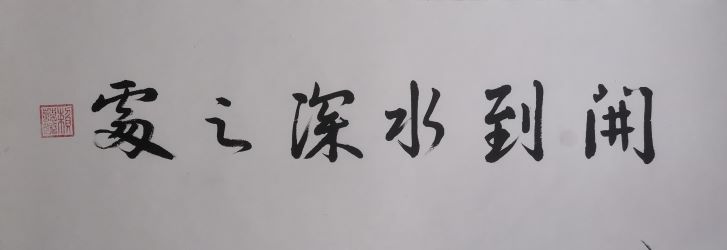 開到水深之處